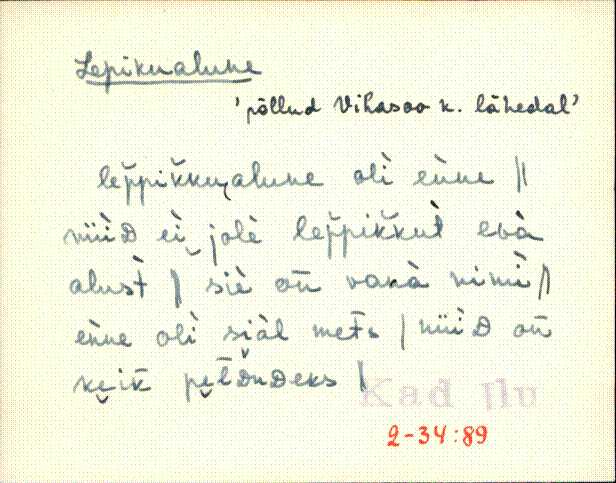 Lepikualune
'põllud Vihasoo k. lähedal'
lep̆pik̆ku‿alune olì eǹne ||
nüìD eì‿jolè lep̆pik̆kut̀ egà
alust̀ || siè on̄ vanà nimì ||
eǹne olì siàl met̄s | nüìD on̄
ke̮ik̄ pe̮l̄DuDeks |
Kad Ilu
2-34:89